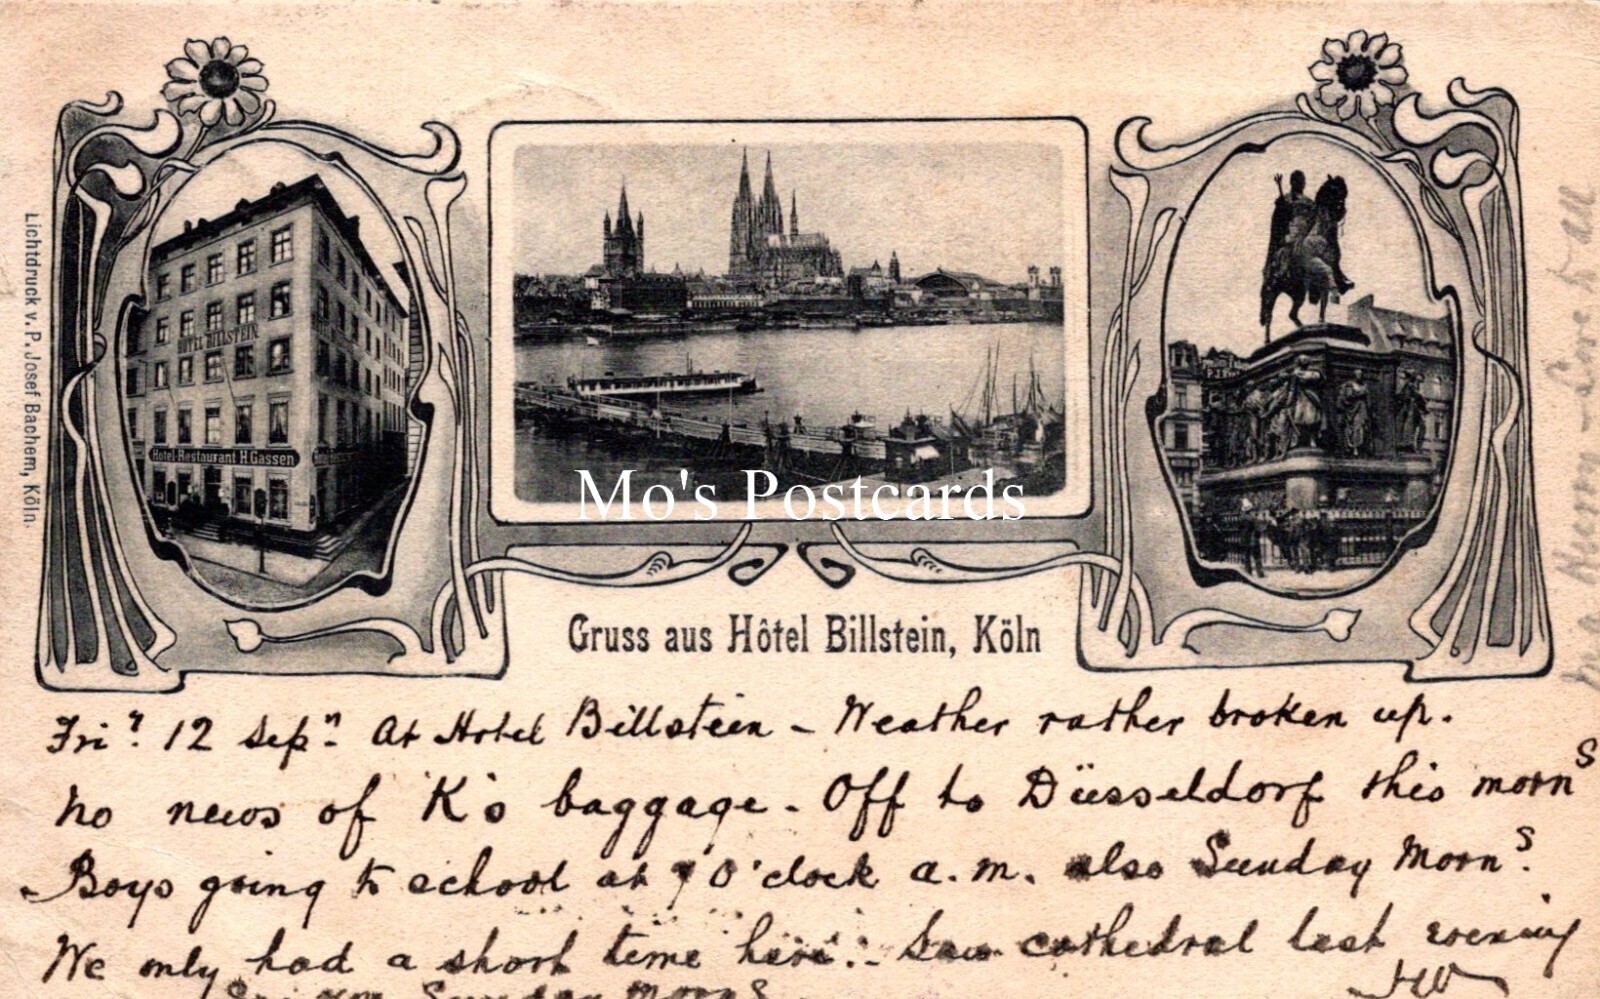 HOTEL BILLSTEIN
Hotel-Restaurant H. Gassen
Lichtdruck v. P. Josef Bachem, Köln.
Mo's Postcards
Gruss aus Hôtel Billstein, Köln
Friy. 12 Sepn. At Hotel Billstein - Weather rather broken up.
No news of K's baggage - Off to Düesseldorf this morng
Boys going to school at 7 O'clock a.m. also Sunday Morng.
We only had a short time here. - Saw cathedral last evening
Sunday Morng
HW
- Love to all